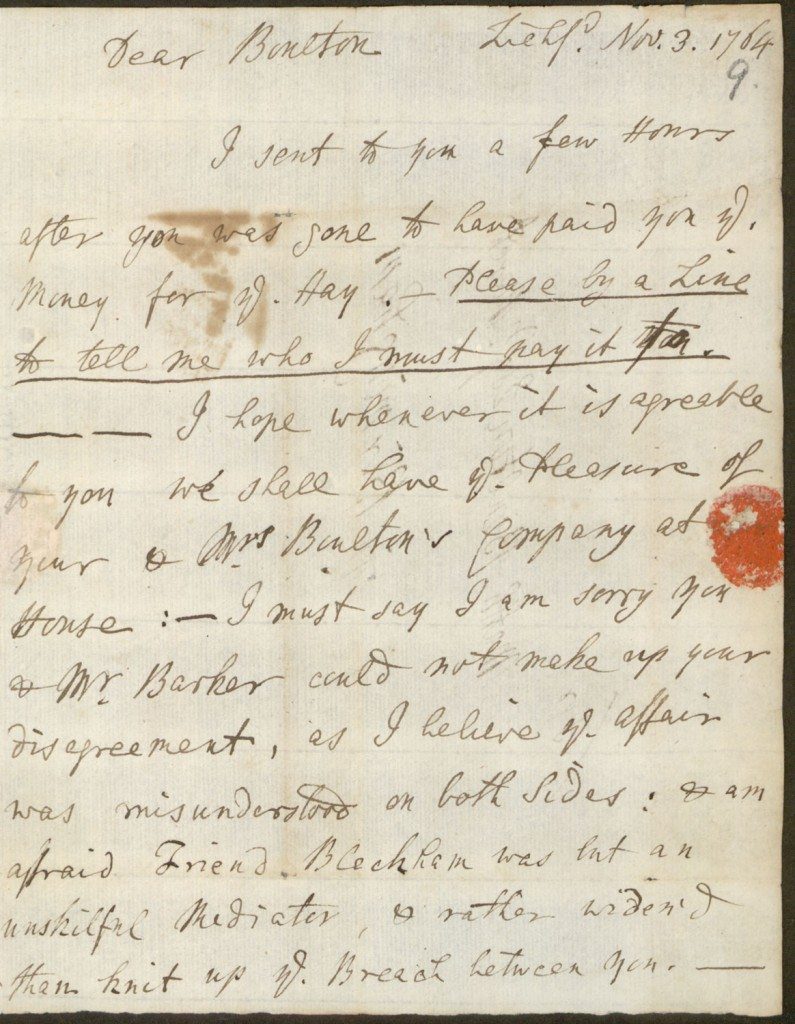 Dear Boulton Lichfd. Nov. 3. 1764
9.
I sent to you a few Hours
after you was gone to have paid you ye.
Money for ye. Hay . — Please by a Line
to tell me who I must pay it to.
— — I hope whenever it is agreable
to you we shall have ye. Pleasure of
your & Mrs Boulton's Company at
House : — I must say I am sorry you
& Mr. Barker could not make up your
disagreement, as I believe ye. affair
was misunderstood on both Sides : & am
affraid Friend Bleckham was but an
unskilful Mediator, & rather widen'd
than knit up ye. Breach between you. —